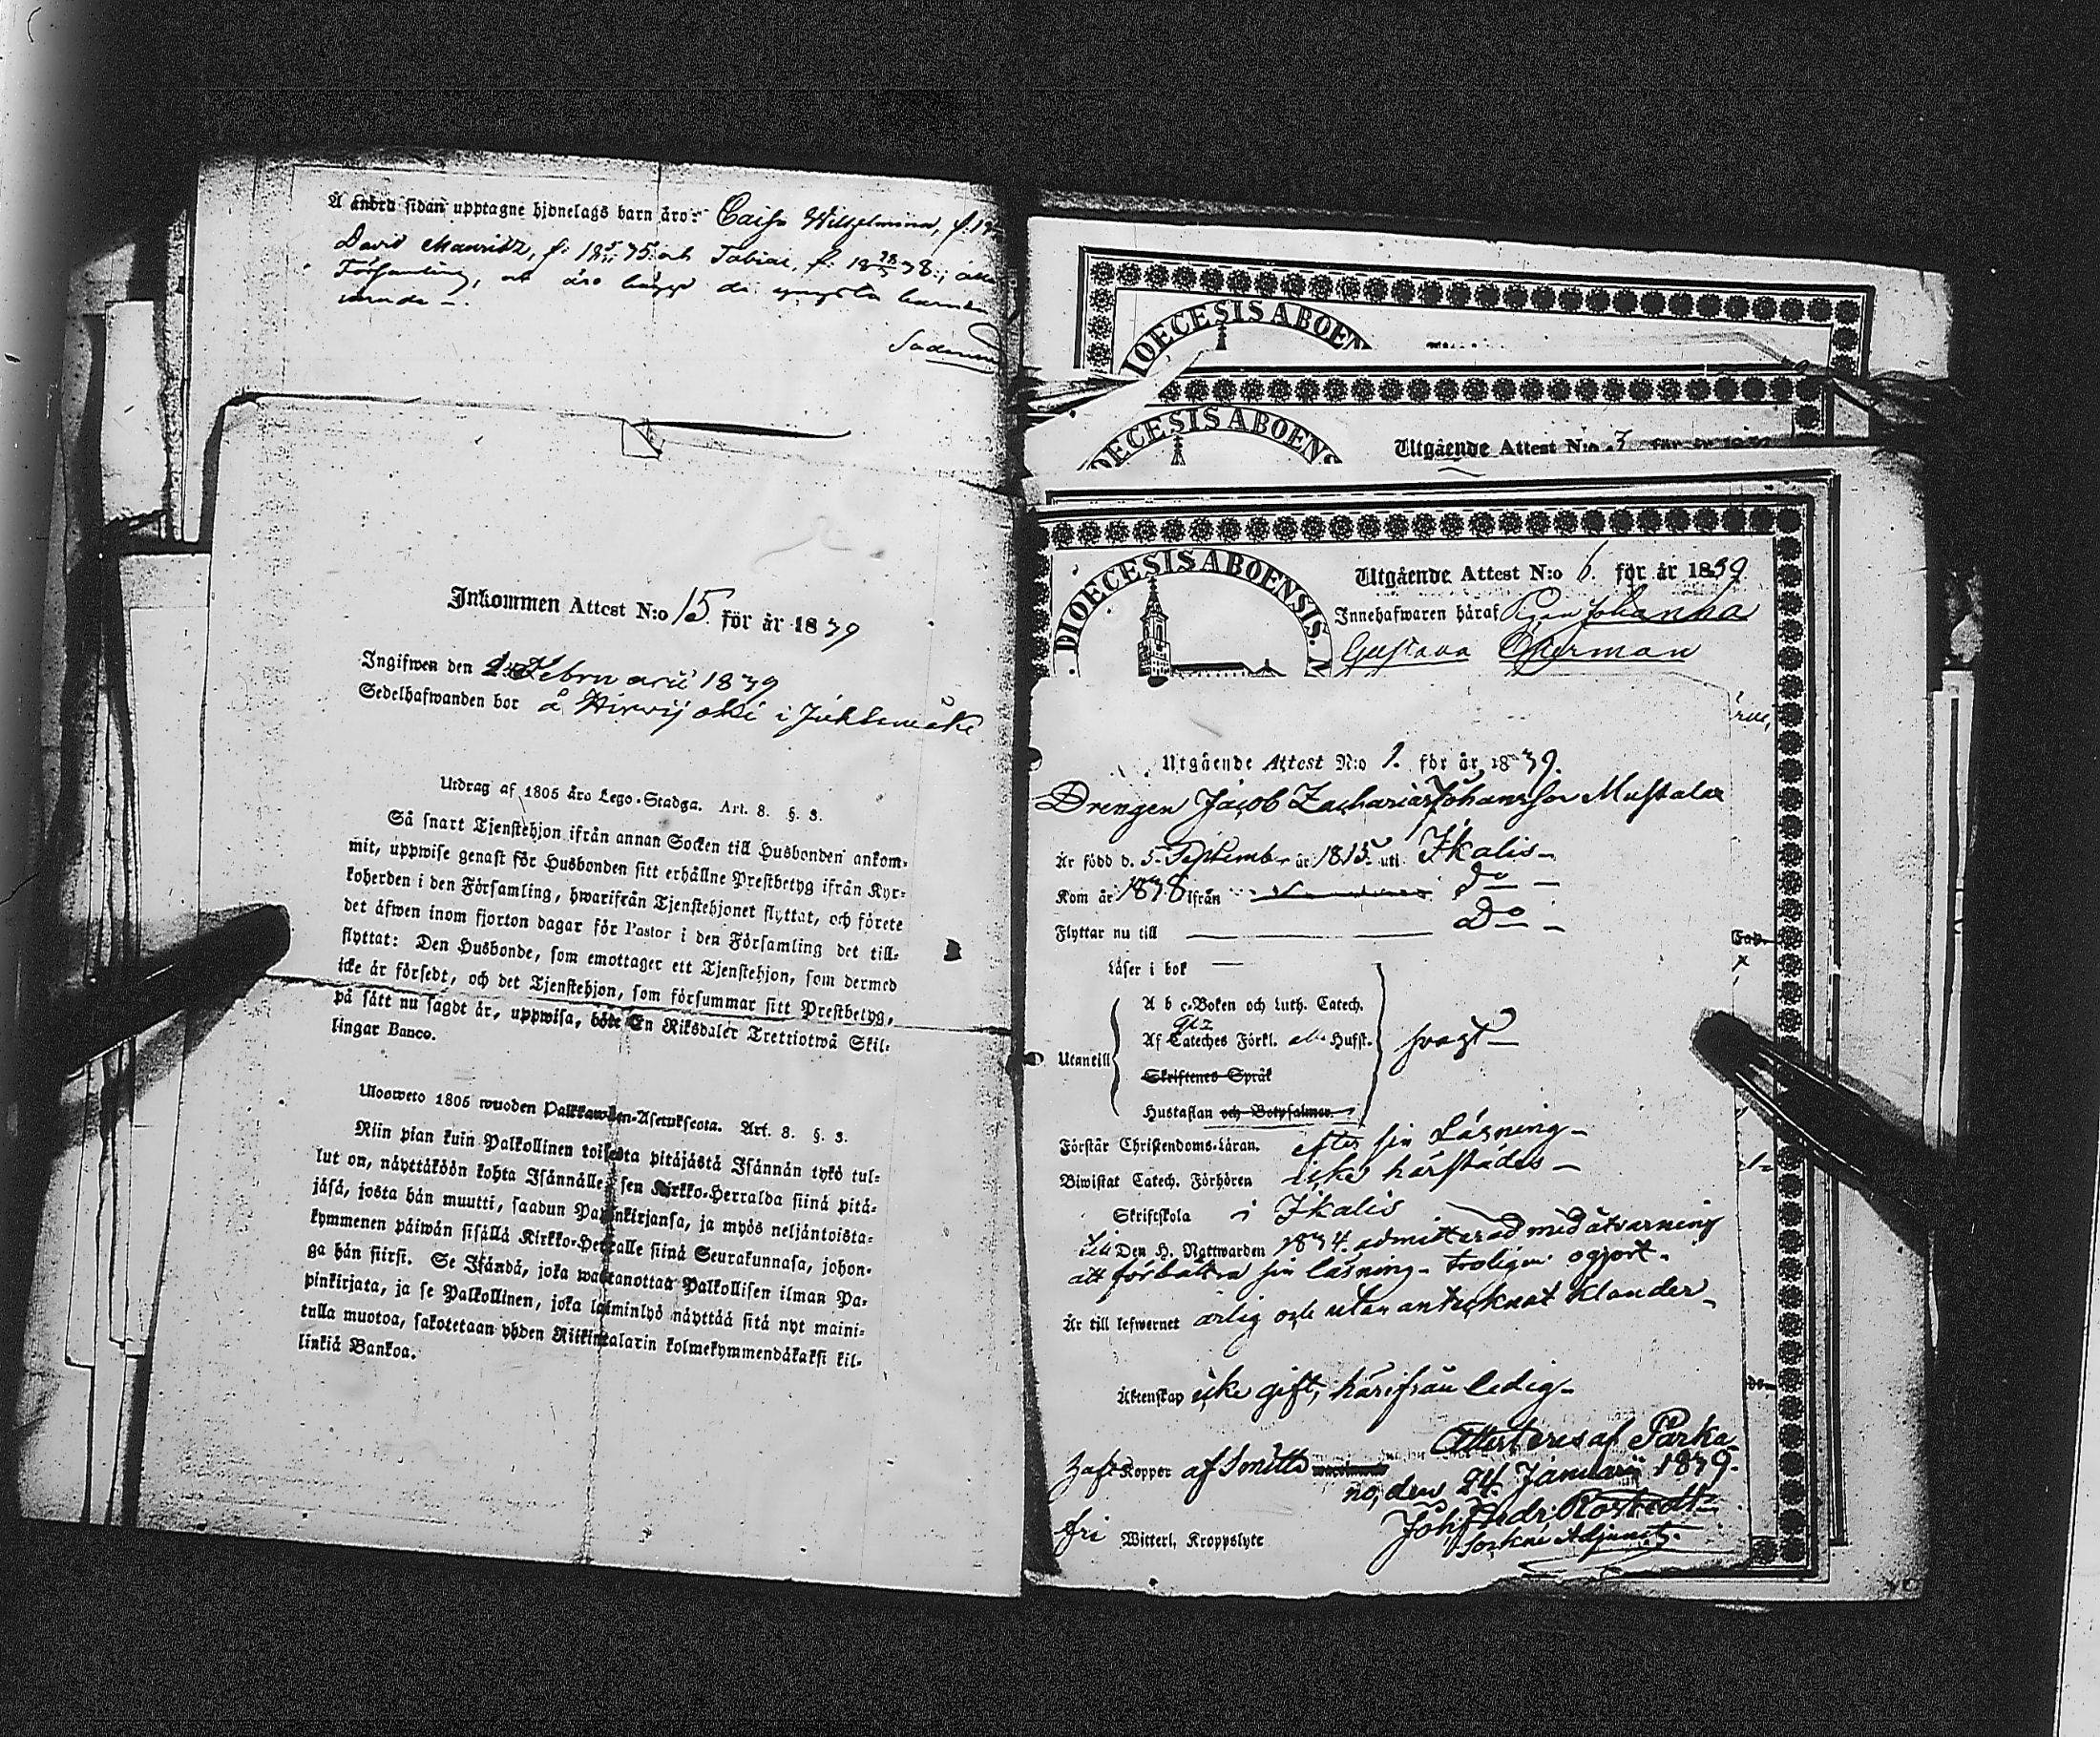 Å andra sidan upptagne hjonelags barn äro: Caisa Wilhelmina, f.
David Mauritz, f. och Tobias, f.
Församling, och äro de yngsta barnen
Inkommen Attest N:o 15 för år 1839
Ingifwen den Februarii 1839
Sedelhafwanden bor å i
Utdrag af 1805 års Lego-Stadga. Art. 8. §. 3.
Så snart Tjenstehjon ifrån annan Socken till Husbonden ankom-
mit, uppwise genast för Husbonden sitt erhållne Prestbetyg ifrån Kyr-
koherden i den Församling, hwarifrån Tjenstehjonet flyttat, och förete
det äfwen inom fjorton dagar för Pastor i den Församling det till-
flyttat: Den Husbonde, som emottager ett Tjenstehjon, som dermed
icke är försedt, och det Tjenstehjon, som försummar sitt Prestbetyg,
på sätt nu sagdt är, uppwisa, böte En Riksdaler Trettiotwå Skil-
lingar Banco.
Ulosweto 1805 wuoden Palkkawäen-Asetuksesta. Art. 8. §. 3.
Niin pian kuin Palkollinen toisesta pitäjästä Isännän tykö tul-
lut on, näyttäköön kohta Isännälle sen Kirkko-Herralda siinä pitä-
jäsä, josta hän muutti, saadun Papinkirjansa, ja myös neljäntoista-
kymmenen päiwän sisällä Kirkko-Herralle siinä Seurakunnasa, johon-
ga hän siirsi. Se Isändä, joka wastanottaa Palkollisen ilman Pa-
pinkirjata, ja se Palkollinen, joka laiminlyö näyttää sitä nyt maini-
tulla muotoa, sakotetaan yhden Riikintalarin kolmekymmendäkaksi kil-
linkiä Bankoa.
DIOECESIS ABOEN
DECESIS ABOENS
Utgående Attest N:o 7 för år
DIOECESIS ABOENSIS.
Utgående Attest N:o 6. för år 1839
Innehafwaren häraf Pigan Johanna
Gustava Österman
Utgående Attest N:o 1. för år 1839.
Drengen Jacob Zacharias Johansson Mustalax
Är född d. 5. September år 1815 uti Ikalis
Kom år 1838 ifrån Do
Flyttar nu till Do
Läser i bok
A b c-Boken och Luth. Catech.
Af Cateches Förkl. Husst.
Utantill svagt
Skriftenes Språk
Hustaflan och Botpsalmer.
Förstår Christendoms-Läran. efter sin Läsning
Biwistat Catech. Förhören icke härstädes
Skriftskola i Ikalis
Den H. Nattwarden 1834. admitterad med åtvarning
att förbättra sin läsning - troligen ogjort.
Är till lefwernet ärlig och utan antecknat klander
Äktenskap icke gift, härifrån ledig
Attesteras af Parka-
Haft Koppor af Smitto
no, den 24. Januarii 1839.
Joh. Fredr. Rostedt
fri Witterl. Kroppslyte
Sockne Adjunct.